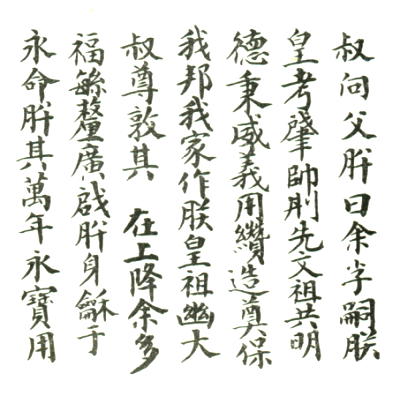 叔向父㸫曰余小子嗣朕
皇考肇帥刑先文祖共明
德秉威義用纘造奠保
我邦我家作朕皇祖幽大
叔尊敦其 在上降余多
福緐釐廣啟㸫身龢于
永命㸫其萬年永寶用